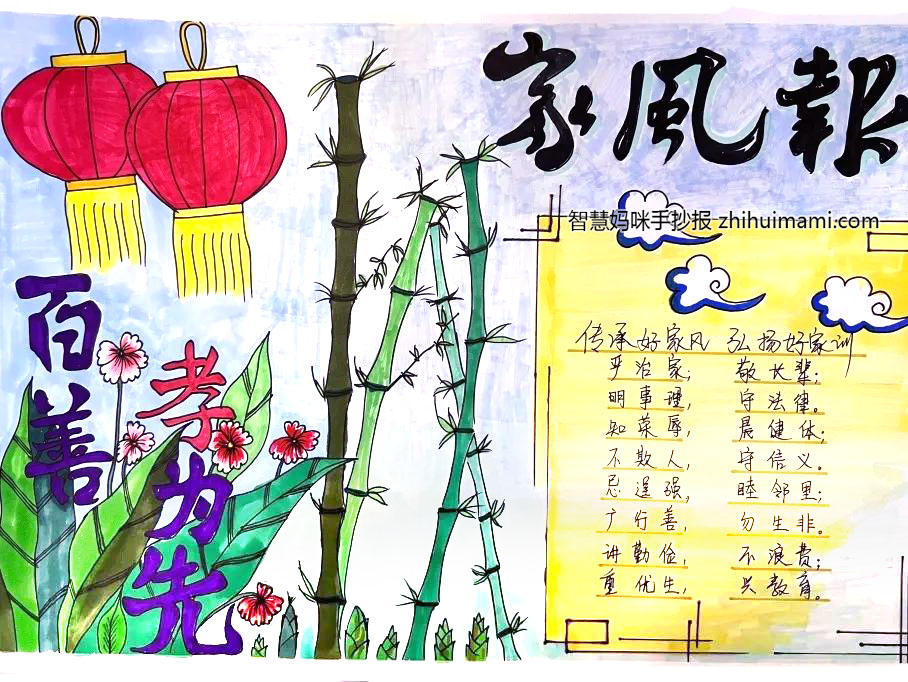 家風報
智慧妈咪手抄报 zhihuimami.com
百善
孝为先
传承好家风 弘扬好家训
严治家; 敬长辈;
明事理, 守法律。
知荣辱, 晨健体;
不欺人, 守信义。
忌逞强, 睦邻里;
广行善, 勿生非。
讲勤俭, 不浪费;
重优生, 兴教育。